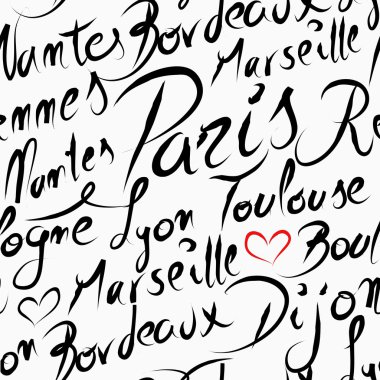 Nantes Bordeaux L
ennes Marseille
Nantes Paris Re
logne Lyon Toulouse
Marseille Boul
on Bordeaux Dijon
Ly